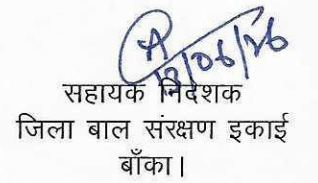 A
12/06/26
सहायक निदेशक
जिला बाल संरक्षण इकाई
बाँका।